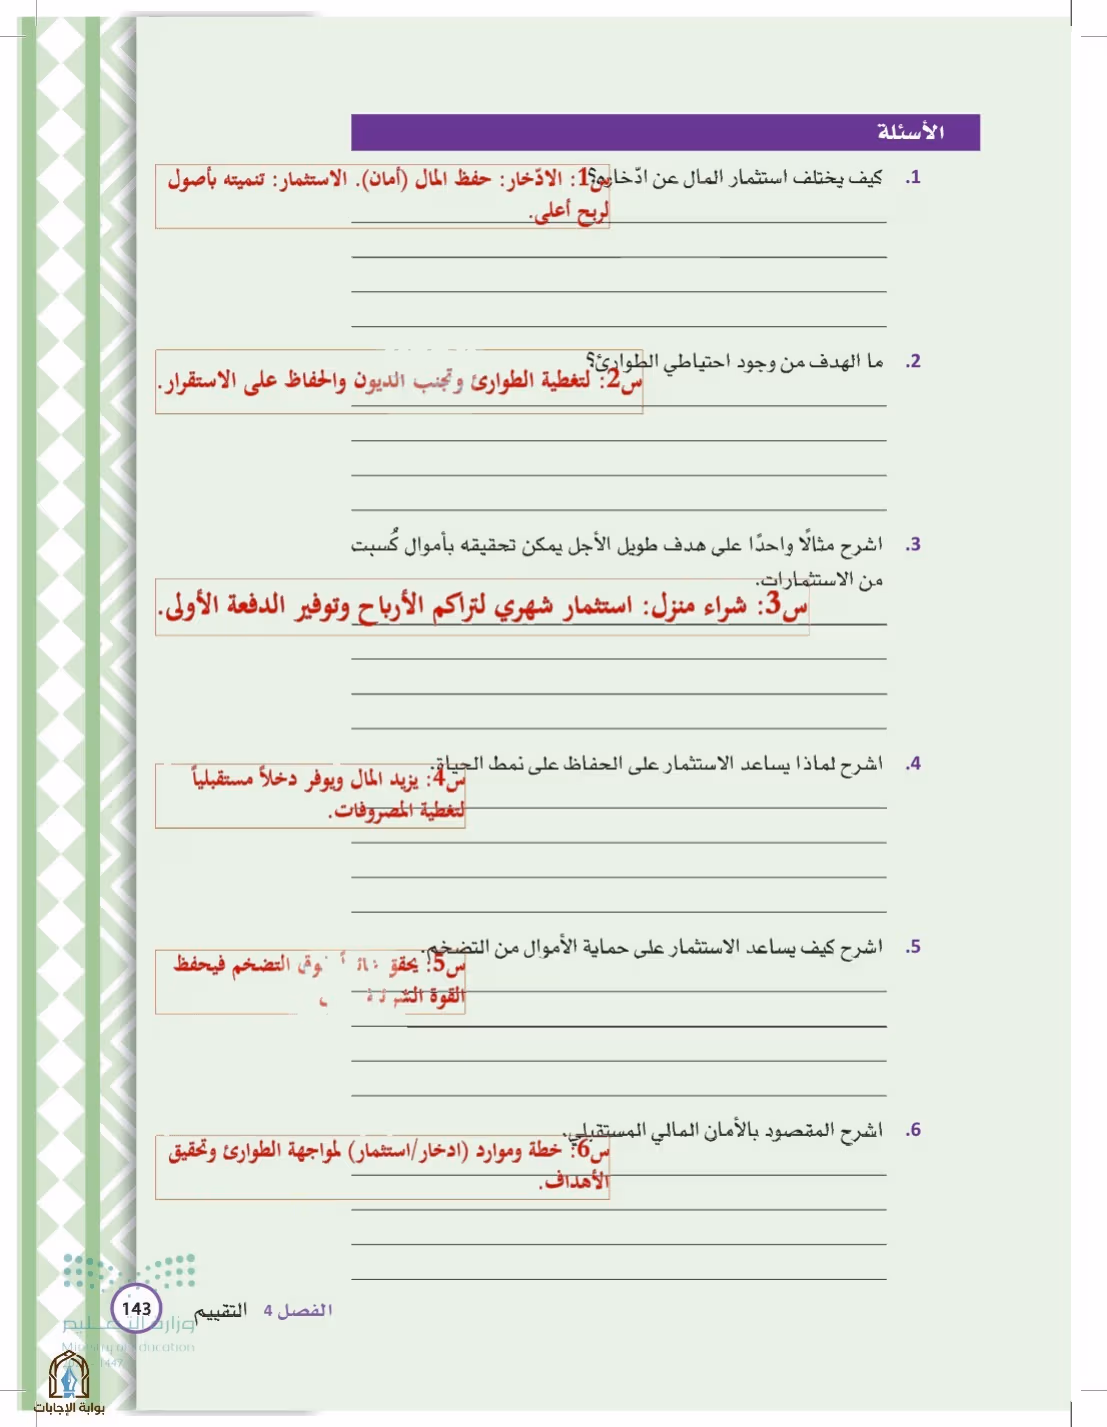 الأسئلة
1. كيف يختلف استثمار المال عن ادّخاره؟
س1: الادّخار: حفظ المال (أمان). الاستثمار: تنميته بأصول
لربح أعلى.
2. ما الهدف من وجود احتياطي الطوارئ؟
س2: لتغطية الطوارئ وتجنب الديون والحفاظ على الاستقرار.
3. اشرح مثالًا واحدًا على هدف طويل الأجل يمكن تحقيقه بأموال كُسبت
من الاستثمارات.
س3: شراء منزل: استثمار شهري لتراكم الأرباح وتوفير الدفعة الأولى.
4. اشرح لماذا يساعد الاستثمار على الحفاظ على نمط الحياة.
س4: يزيد المال ويوفر دخلاً مستقبلياً
لتغطية المصروفات.
5. اشرح كيف يساعد الاستثمار على حماية الأموال من التضخم.
س5: يحقق التضخم فيحفظ
القوة
6. اشرح المقصود بالأمان المالي المستقبلي.
س6: خطة وموارد (ادخار/استثمار) لمواجهة الطوارئ وتحقيق
الأهداف.
الفصل 4 التقييم
143
وزارة التعليم
Ministry of Education
1447
بوابة الإجابات